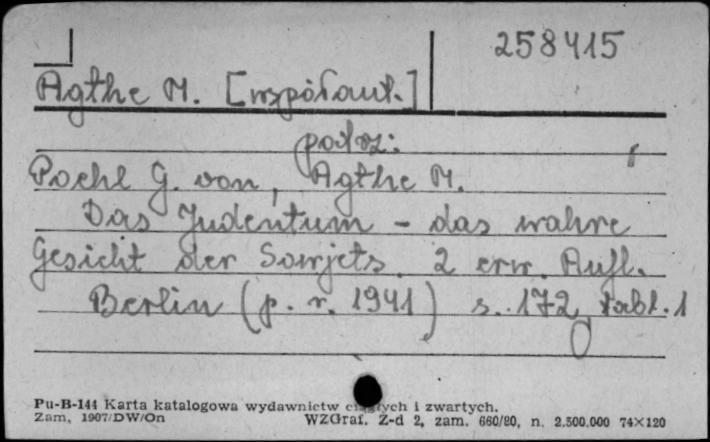 258415
Agthe M. [współaut.]
patrz:
Poehl G. von, Agthe M.
Das Judentum - das wahre
Gesicht der Sowjets. 2 erw. Aufl.
Berlin (p. r. 1941) s. 172, tabl. 1
Pu-B-144 Karta katalogowa wydawnictw ciągłych i zwartych.
Zam. 1907/DW/On WZGraf. Z-d 2, zam. 660/80, n. 2.500.000 74×120